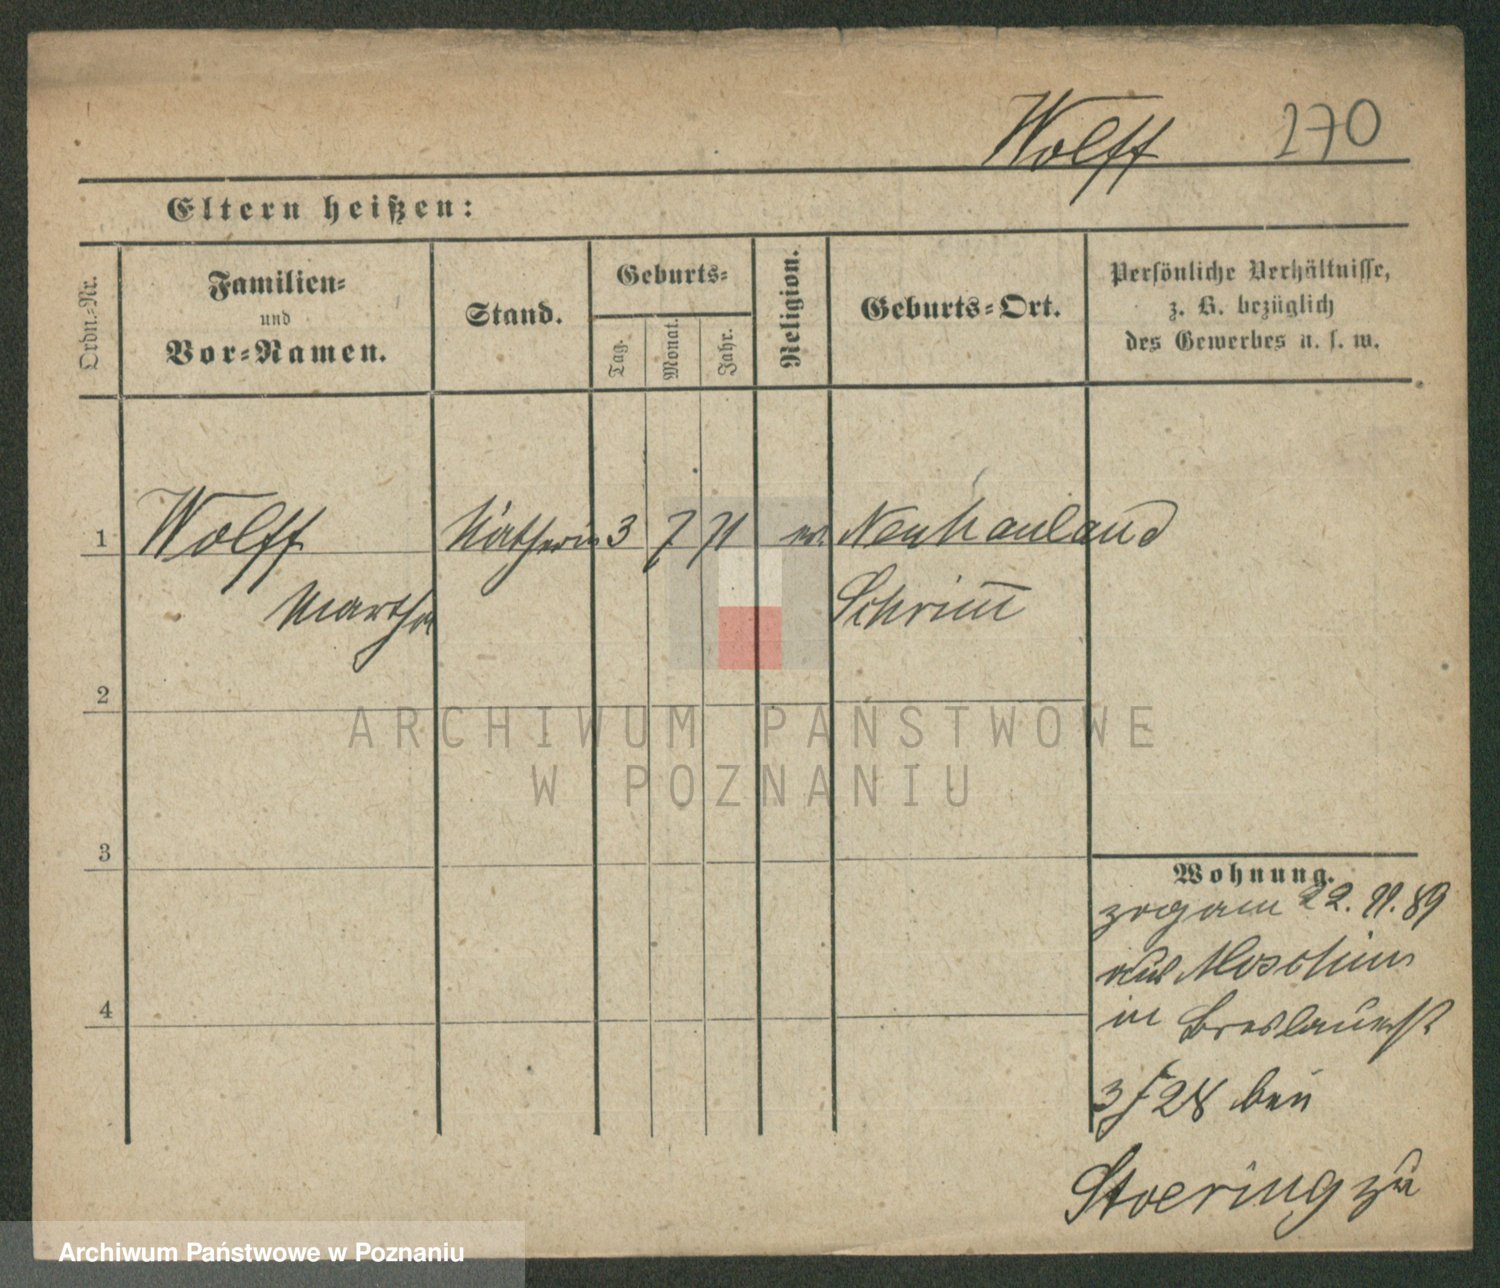 Wolff 270
Eltern heißen:
Ordn.-Nr.
Familien-
und
Vor-Namen.
Stand.
Geburts-
Tag.
Monat.
Jahr.
Religion.
Geburts-Ort.
Persönliche Verhältnisse,
z. B. bezüglich
des Gewerbes u. s. w.
1 Wolff Nätherin 3 7 71 ev. Neuhauland
Martha Schrim̅
2
ARCHIWUM PAŃSTWOWE
W POZNANIU
3
Wohnung.
zog am 22. 11. 89
aus Moschin
in Breslauerst
3 / 28 bei
Stoering zu
4
Archiwum Państwowe w Poznaniu